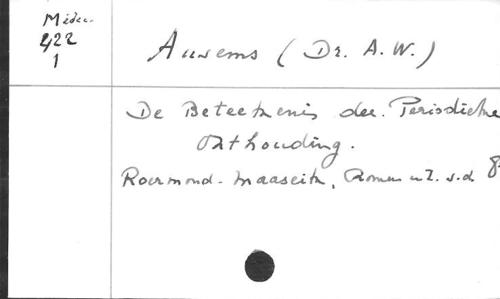 Médec.
422
1
Auwems (Dr. A.W.)
De Beteekenis der Periodieke
Onthouding.
Roermond-Maaseik, Romen s.d. 8°